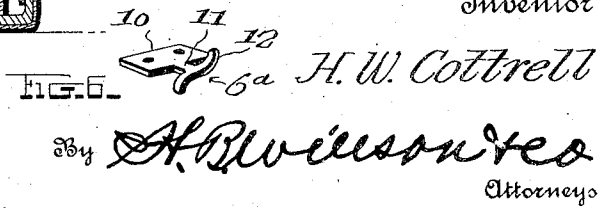 Inventor
10 11 12
6a H. W. Cottrell
FIG. 6.
By H. B. Willson & Co
Attorneys